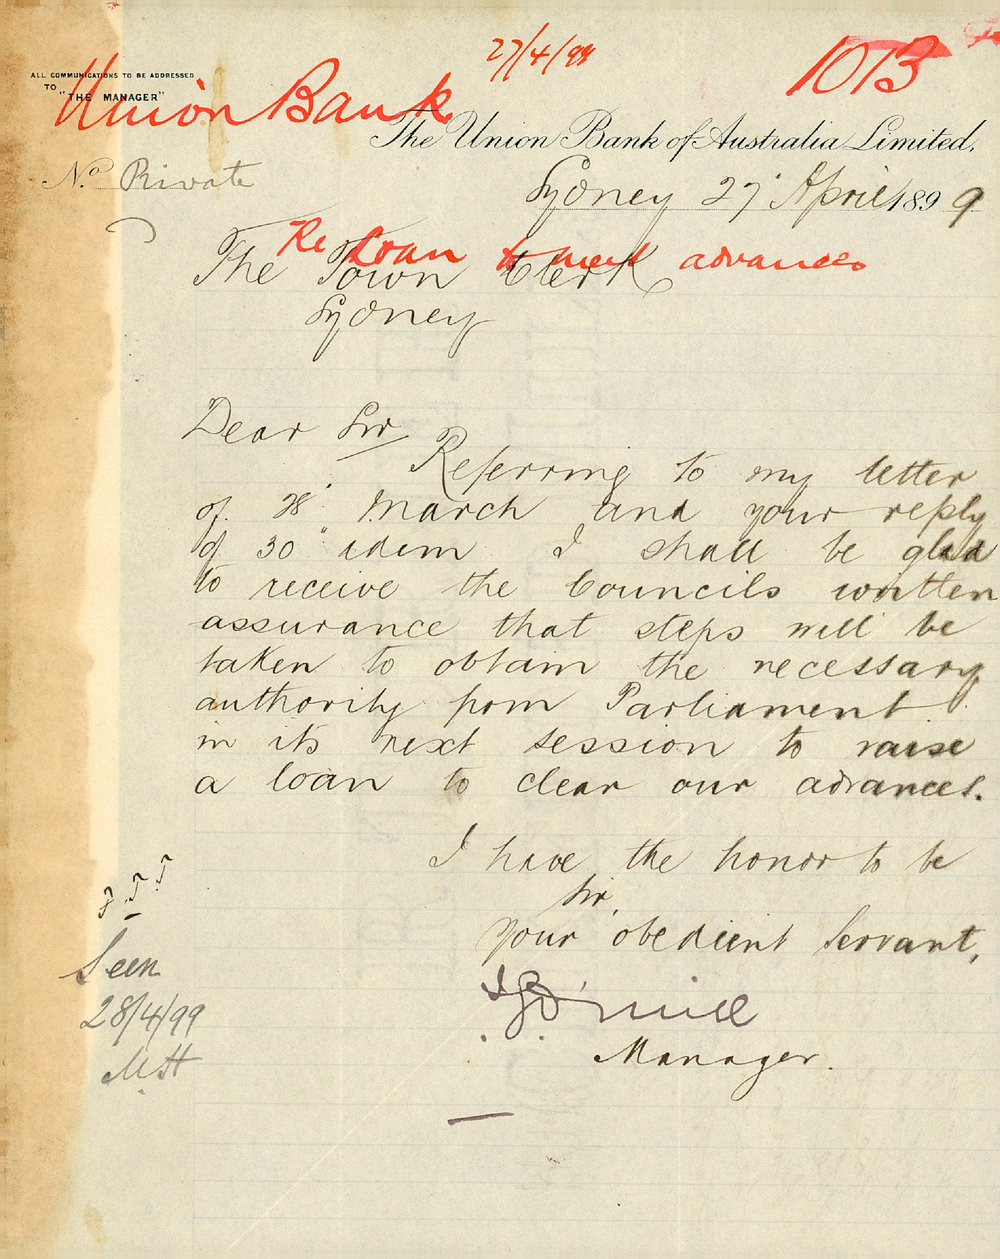 27/4/99
1013
ALL COMMUNICATIONS TO BE ADDRESSED
TO "THE MANAGER"
Union Bank
The Union Bank of Australia Limited.
No. Private
Sydney 27 April 1899
Re Loan to meet advances
The Town Clerk
Sydney
Dear Sir
Referring to my letter
of 28" March and your reply
of 30" idem I shall be glad
to receive the Councils written
assurance that steps will be
taken to obtain the necessary
authority from Parliament
in its next session to raise
a loan to clear our advances.
I have the honor to be
Sir,
Your obedient Servant,
Manager.
Seen
28/4/99
M.H